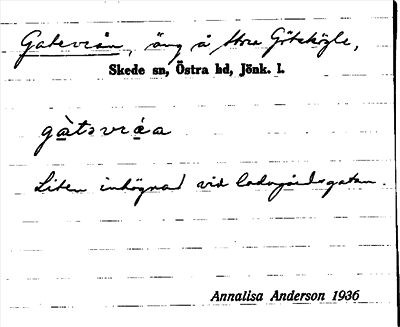 Gatevrån, äng å Stora Götskögle,
Skede sn, Östra hd, Jönk. l.
gàtəvráa
Liten inhägnad vid ladugårdsgatan.
Annalisa Anderson 1936